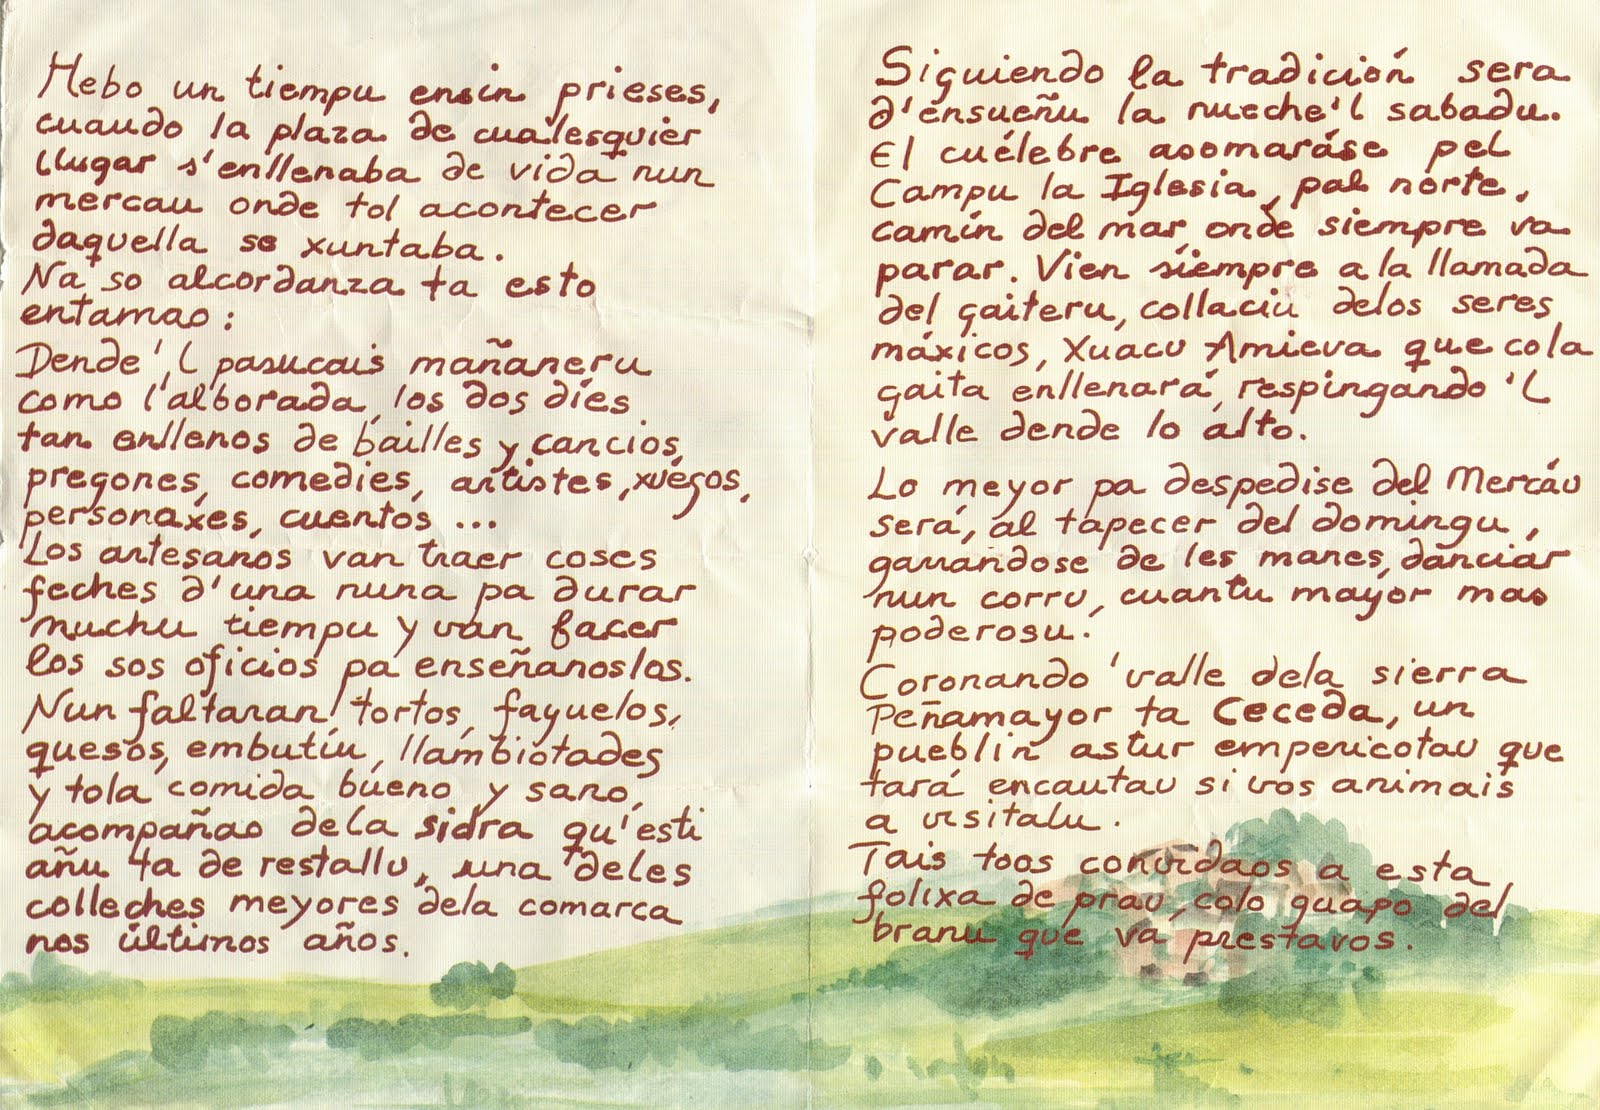 Hebo un tiempu ensin prieses,
cuando la plaza de cualesquier
llugar s'enllenaba de vida nun
mercau onde tol acontecer
daquella se xuntaba.
Na so alcordanza ta esto
entamao:
Dende'l pasucais mañaneru
como l'alborada, los dos díes
tan enllenos de bailles y cancios,
pregones, comedies, artistes, xuegos,
personaxes, cuentos ...
Los artesanos van traer coses
feches d'una nuna pa durar
muchu tiempu y van facer
los sos oficios pa enseñanoslos.
Nun faltaran tortos, fayuelos,
quesos, embutíu, llambiotades
y tola comida bueno y sano,
acompañao dela sidra qu'esti
añu ta de restallu, una deles
colleches meyores dela comarca
nos últimos años.
Siguiendo la tradición sera
d'ensueñu la nueche'l sabadu.
El cuélebre asomaráse pel
Campu la Iglesia, pal norte,
camín del mar, onde siempre va
parar. Vien siempre a la llamada
del gaiteru, collaciu delos seres
máxicos, Xuacu Amieva que cola
gaita enllenará, respingando'l
valle dende lo alto.
Lo meyor pa despedise del Mercáu
será, al tapecer del domingu,
garrándose de les manes, danciar
nun corru, cuantu mayor mas
poderosu.
Coronando 'valle dela sierra
Peñamayor ta Ceceda, un
pueblín astur empericotau que
tará encautau si vos animais
a visitalu.
Tais toos convidaos a esta
folixa de prau, colo guapo del
branu que va prestavos.